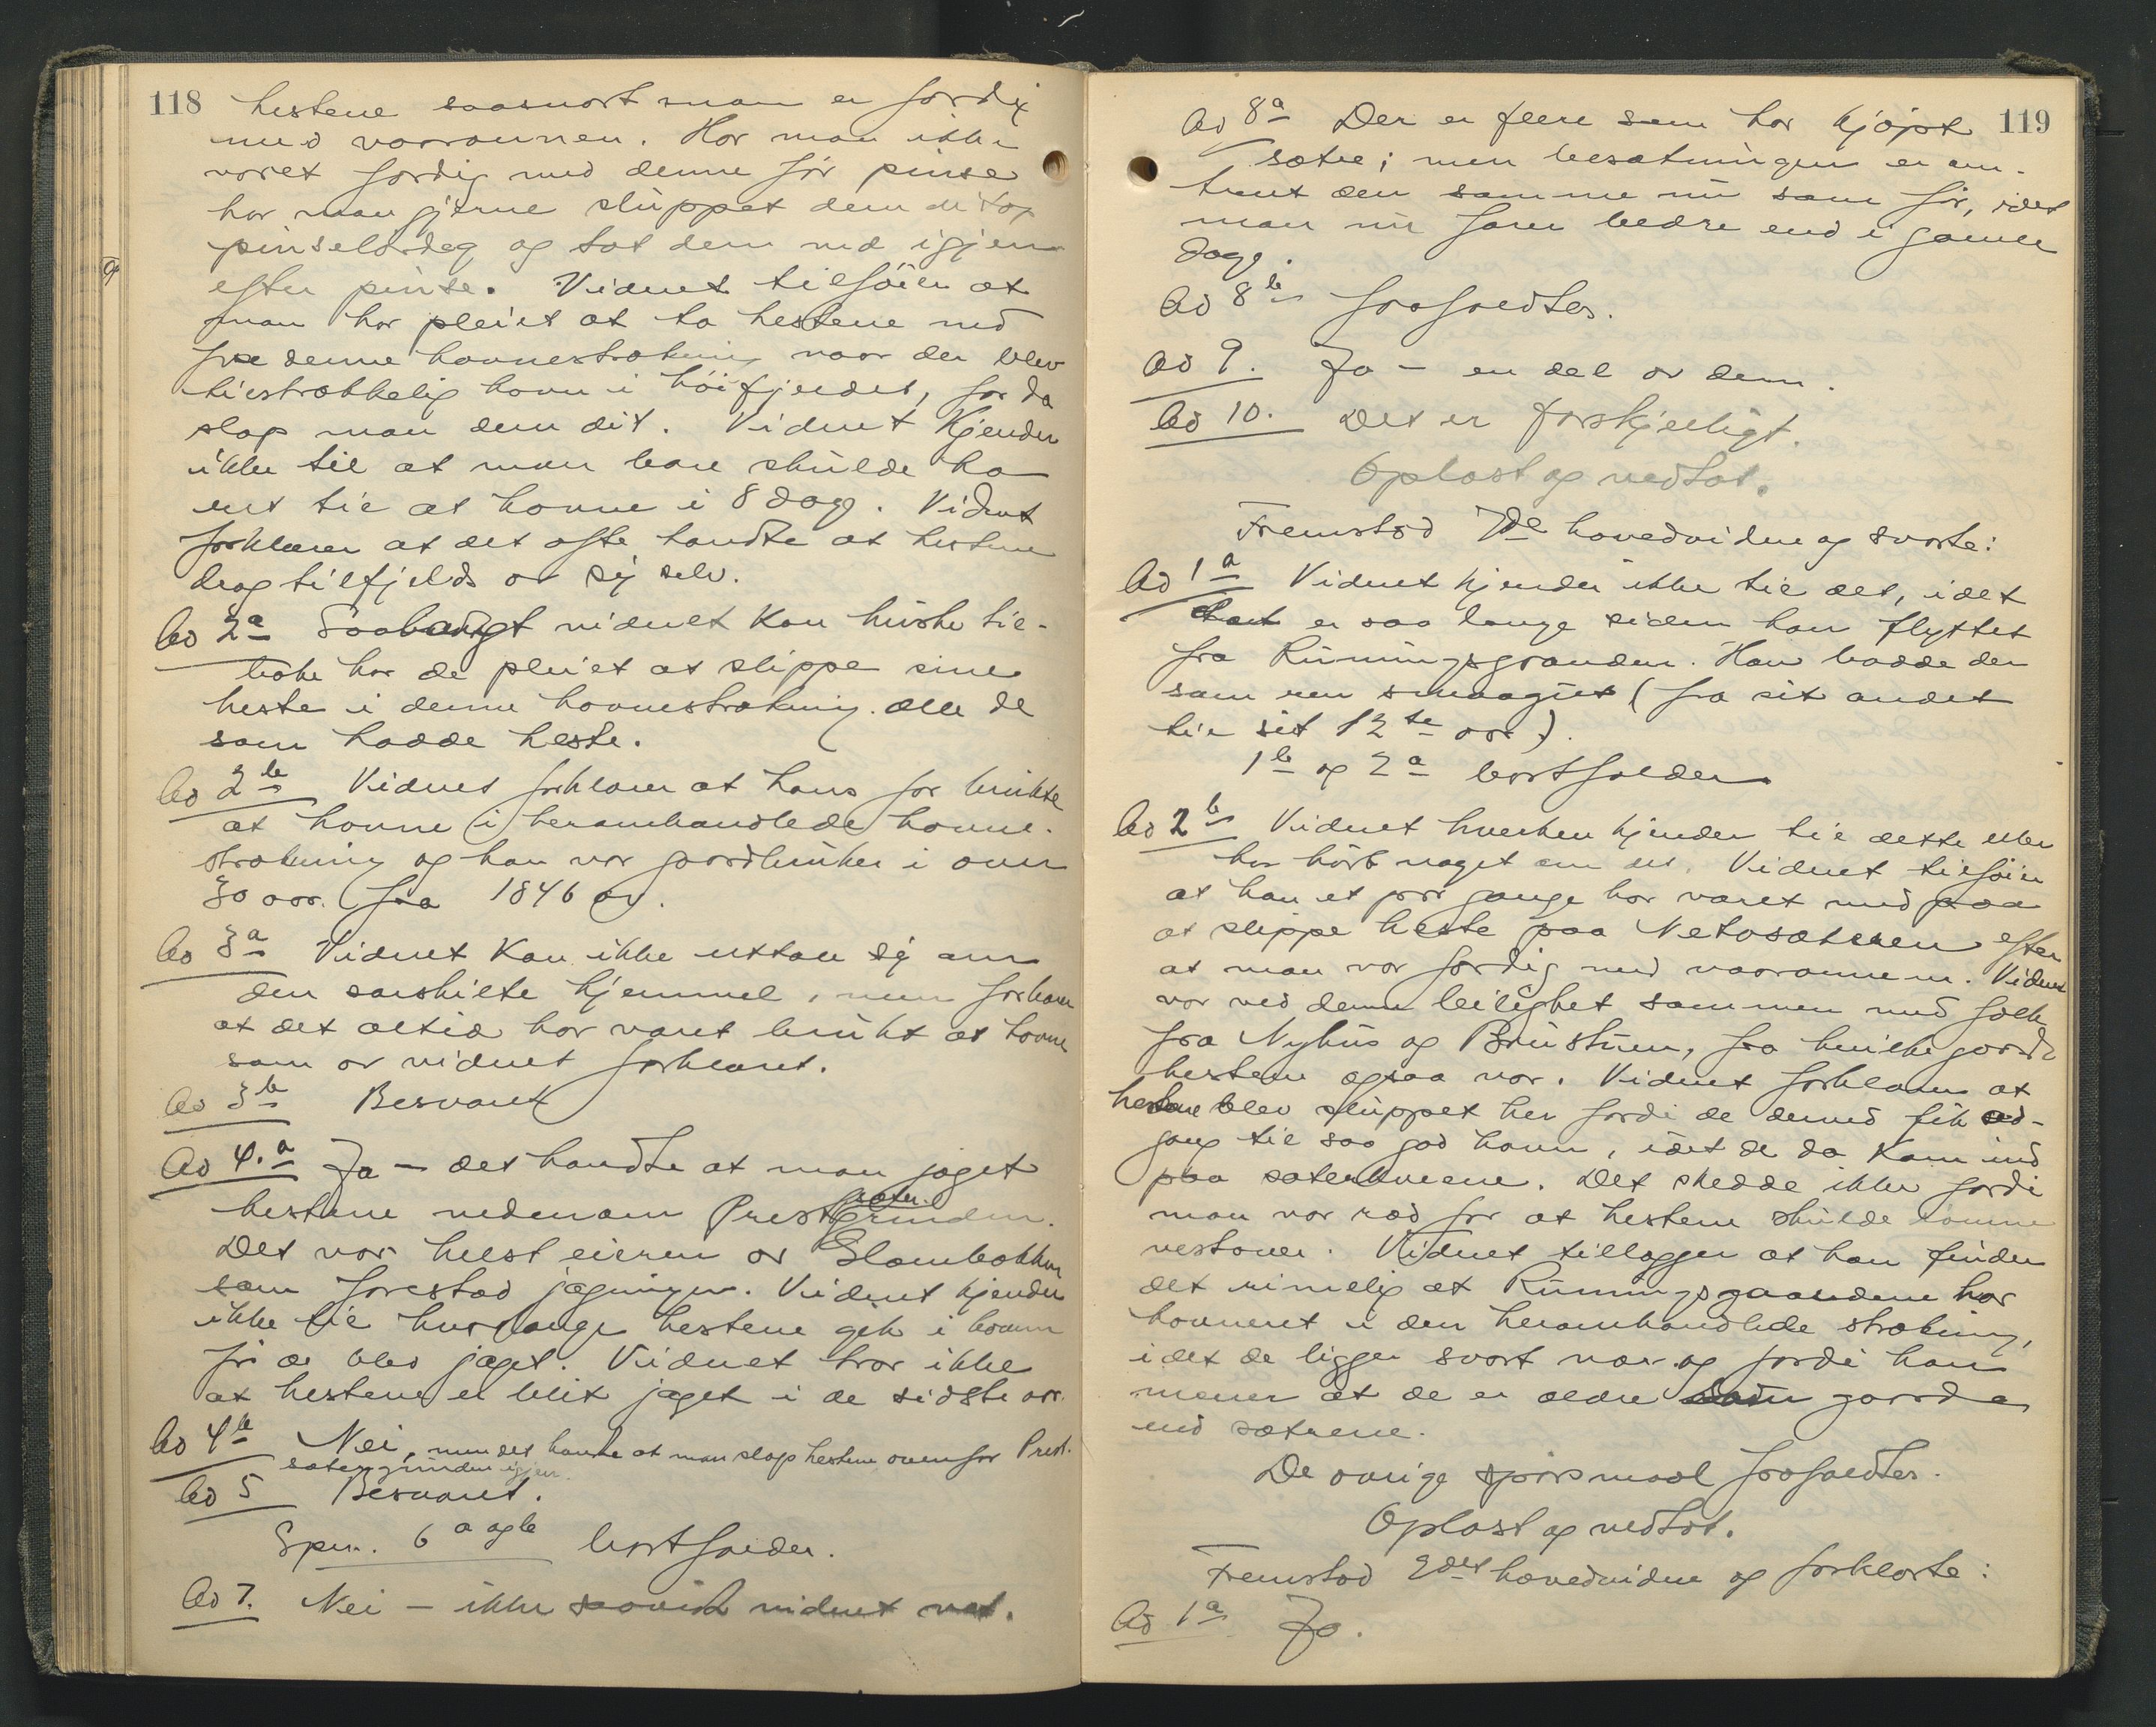 118
hestene saasnart man er færdig
med vaaronnen. Har man ikke
været færdig med denne før pinse
har man gjerne sluppet dem ut op
pinselørdag og tat dem ned igjen
efter pinse. Vidnet tilføier at
man har pleiet at ta hestene ned
fra denne havnestrækning naar der blev
tilstrækkelig havn i høifjeldet, for da
slap man dem dit. Vidnet kjender
ikke til at man bare skulde ha
ret til at havne i 8 dage. Vidnet
forklarer at det ofte hændte at hestene
drog tilfjelds av sig selv.
Ad 2a Saalangt vidnet kan huske til-
bake har de pleiet at slippe sine
heste i denne havnestrækning. alle de
som hadde heste.
Ad 2b Vidnet forklarer at hans far brukte
at havne i heromhandlede havne-
strækning og han var gaardbruker i over
30 aar. fra 1846 av.
Ad 3a Vidnet kan ikke uttale sig om
den særskilte hjemmel, men forklarer
at det altid har været brukt at havne
som av vidnet forklaret.
Ad 3b Besvaret
Ad 4.a Ja – det hændte at man jaget
hestene nedenom Prestsæter-
grinden.
Det var helst eieren av Slambakken
som forestod jagningen. Vidnet kjender
ikke til hvorlange hestene gik i havn
før de blev jaget. Vidnet tror ikke
at hestene er blit jaget i de sidste aar.
Ad 4b Nei, men det hændte at man slap hestene ovenfor Prest-
sætergrinden igjen.
Ad 5 Besvaret.
Spm. 6 a og b bortfalder.
Ad 7. Nei – ikke saavidt vidnet vet.
119
Ad 8a Der er flere som har kjøpt
sætre; men besætningen er om-
trent den samme nu som før, idet
man nu forer bedre end i gamle
dage.
Ad 8b frafaldtes.
Ad 9. Ja – en del av dem.
Ad 10. Det er forskjelligt.
Oplæst og vedtat.
Fremstod 7de hovedvidne og svarte:
Ad 1a Vidnet kjender ikke til det, idet
det er saa lange siden han flyttet
fra Rüningsgrænden. Han bodde der
som ren smaagut (fra sit andet
til sit 12te aar).
1b og 2a bortfalder
Ad 2b Vidnet hverken kjender til dette eller
har hørt noget om det. Vidnet tilføier
at han et par gange har været med paa
at slippe heste paa Netosæteren efter
at man var færdig med vaaronnen. Vidnet
var ved denne leilighet sammen med folk
fra Nyhus og Brustuen, fra hvilke gaarde
hestene ogsaa var. Vidnet forklarer at
hestene blev sluppet her fordi de derved fik ad-
gang til saa god havn, idet de da kam ind
paa sæterkveene. Det skedde ikke fordi
man var ræd for at hestene skulde komme
vestover. Vidnet tillægger at han finder
det rimelig at Rüningsgaardene har
havneret i den heromhandlede strækning,
idet de ligger svært nær og fordi han
mener at de er ældre gaarde
end sætrene.
De øvrige spørsmaal frafaldtes.
Oplæst og vedtat.
Fremstod 2det hovedvidne og forklarte:
Ad 1a Ja.